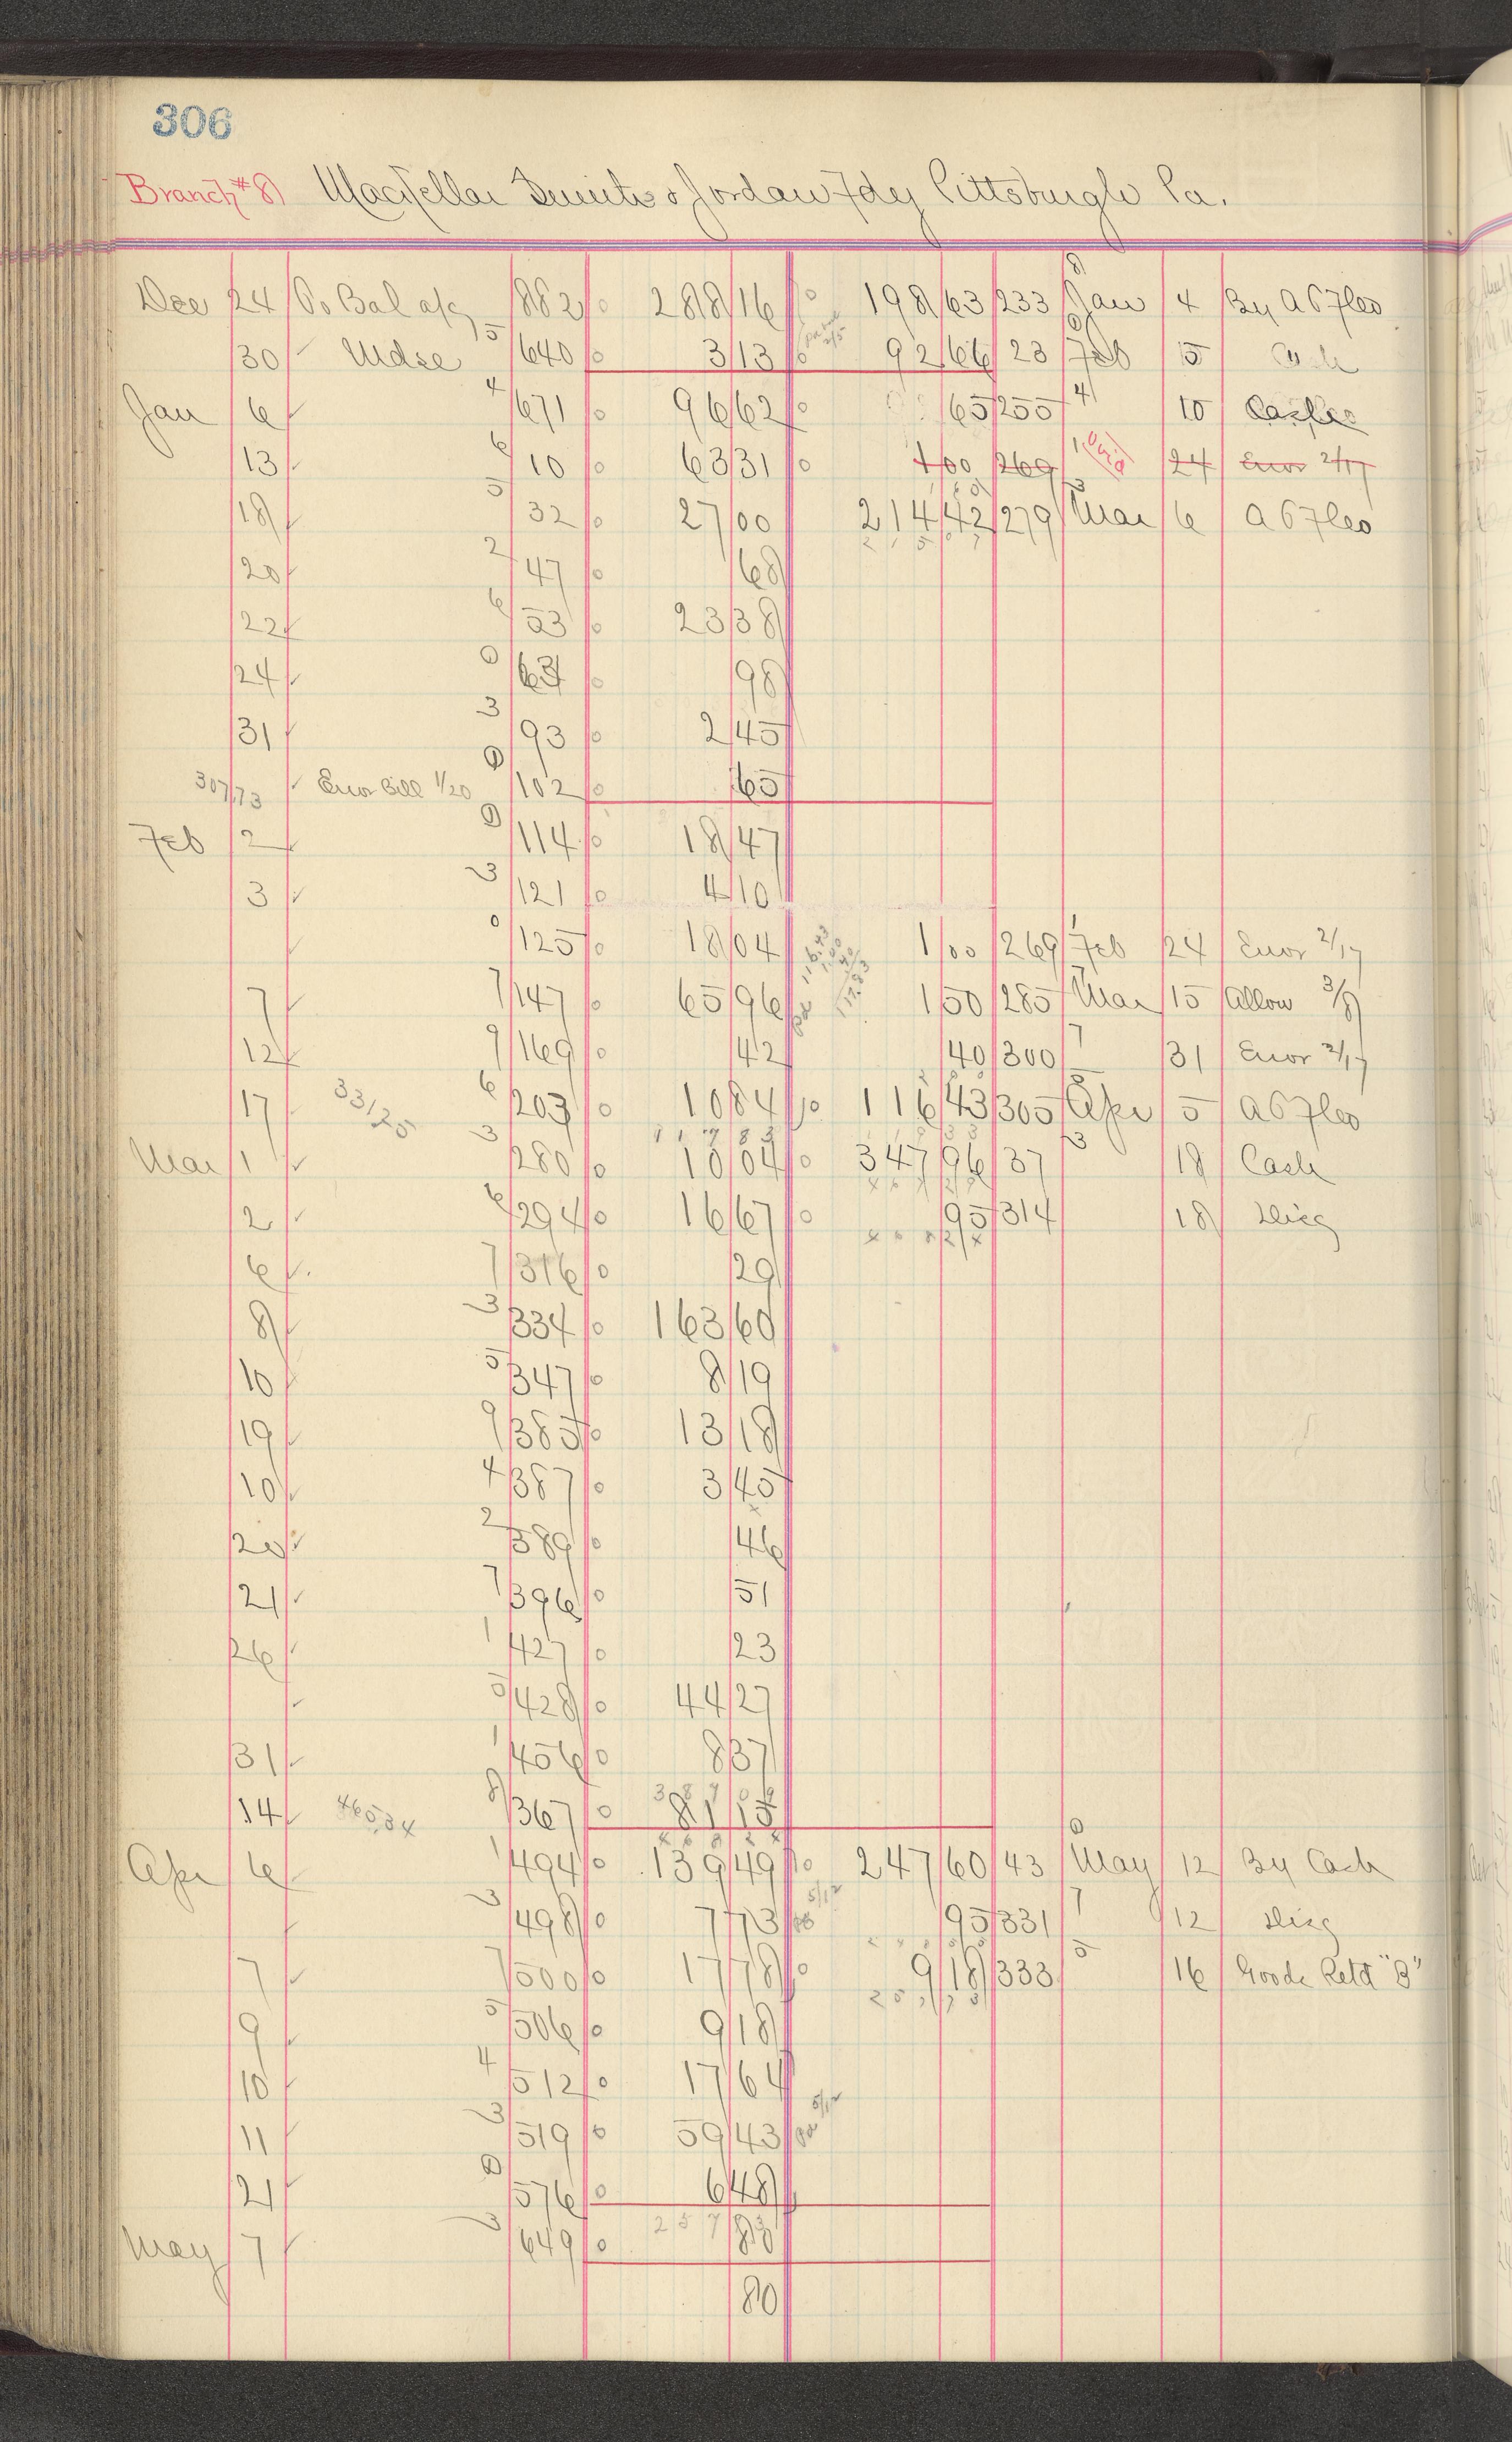 306
Branch #8 MacKellar Smiths & Jordan Fdy Pittsburgh Pa.
Dec 24 To Bal a/c 882 288 16 198 63 233 Jan 4 By A B F Co
30 Mdse 5 640 3 13 92 66 23 Feb 5 Cash
Jan 6 4 671 96 62 65 255 4 10 Cartge
13 6 10 63 31 1 00 269 1 24 Error 2/17
18 5 32 27 00 214 42 279 Mar 6 A B F Co
20 2 47 68
22 6 53 23 38
24 0 63 98
31 3 93 2 45
307/73 Error Bill 1/20 102 65
Feb 2 114 18 47
3 3 121 4 10
0 125 18 04 1 00 269 Feb 24 Error 2/17
7 7 147 65 96 1 50 285 Mar 15 Allow 3/8
12 9 169 42 40 300 7 31 Error 2/17
17 331 25 6 203 10 84 116 43 305 Apr 5 A B F Co
Mar 1 3 280 10 04 347 96 37 3 18 Cash
2 6 294 16 67 95 314 18 Disc
6 7 316 29
8 3 334 163 60
10 5 347 8 19
19 9 385 13 18
10 4 387 3 45
20 2 389 46
21 7 396 51
26 1 427 23
5 428 44 27
31 1 456 8 37
14 465 34 8 367 81 15
Apr 6 1 494 139 49 247 60 43 May 12 By Cash
3 498 7 73 5/12 95 331 7 12 Disc
7 7 500 17 78 9 18 333 5 16 Goods Retd "8"
9 5 506 9 18
10 4 512 17 64
11 3 519 59 43 5/12
21 576 6 48
May 7 3 649 257 83
80